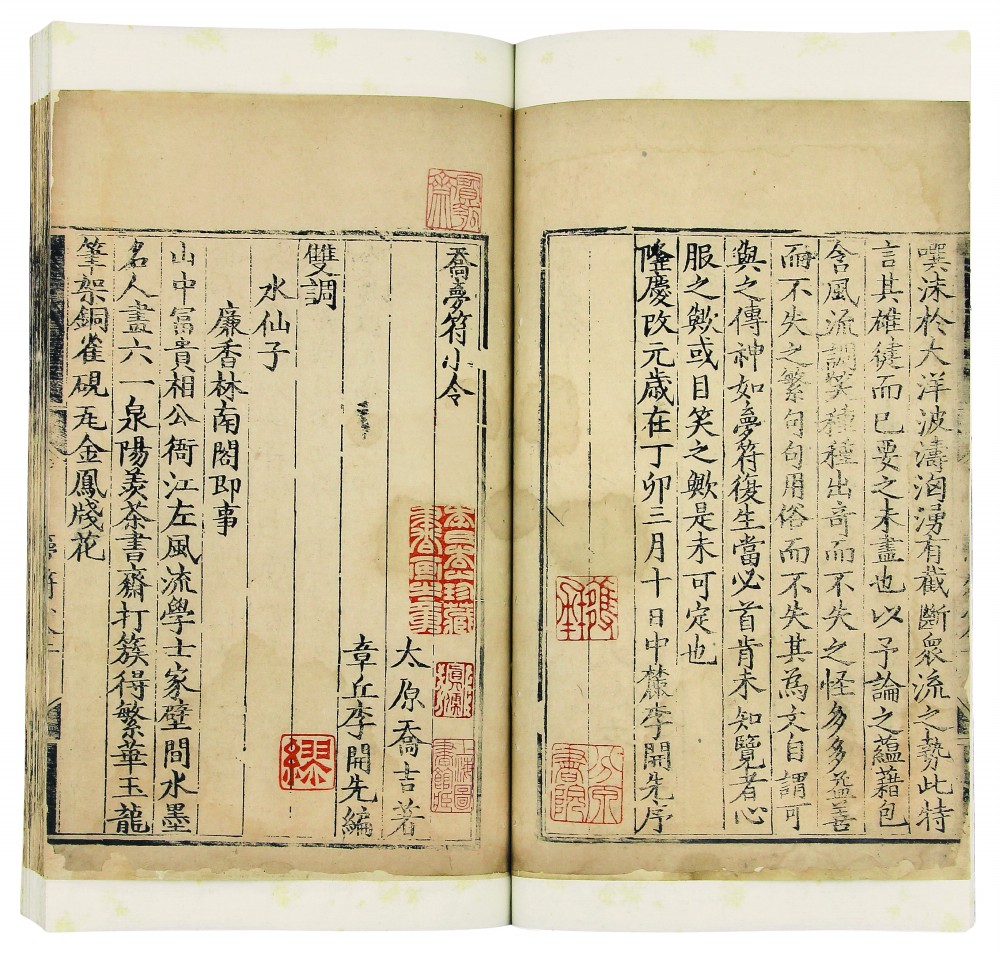 噀沫於大洋波濤洶湧有截斷衆流之勢此特
言其雄徤而已要之未盡也以予論之蘊藉包
含風流調笑種種出奇而不失之怪多多益善
而不失之繁句句用俗而不失其為文自謂可
與之傳神如夢符復生當必首肯未知覽者心
服之歟或目笑之歟是未可定也
隆慶改元歲在丁卯三月十日中麓李開先序
喬夢符小令
太原喬吉著
章丘李開先編
雙調
水仙子
廉香林南閣即事
山中富貴相公衙江左風流學士家壁間水墨
名人畫六一泉陽羨茶書齋打簇得繁華玉龍
筆架銅雀硯瓦金鳳牋花
上海圖書館藏
繆